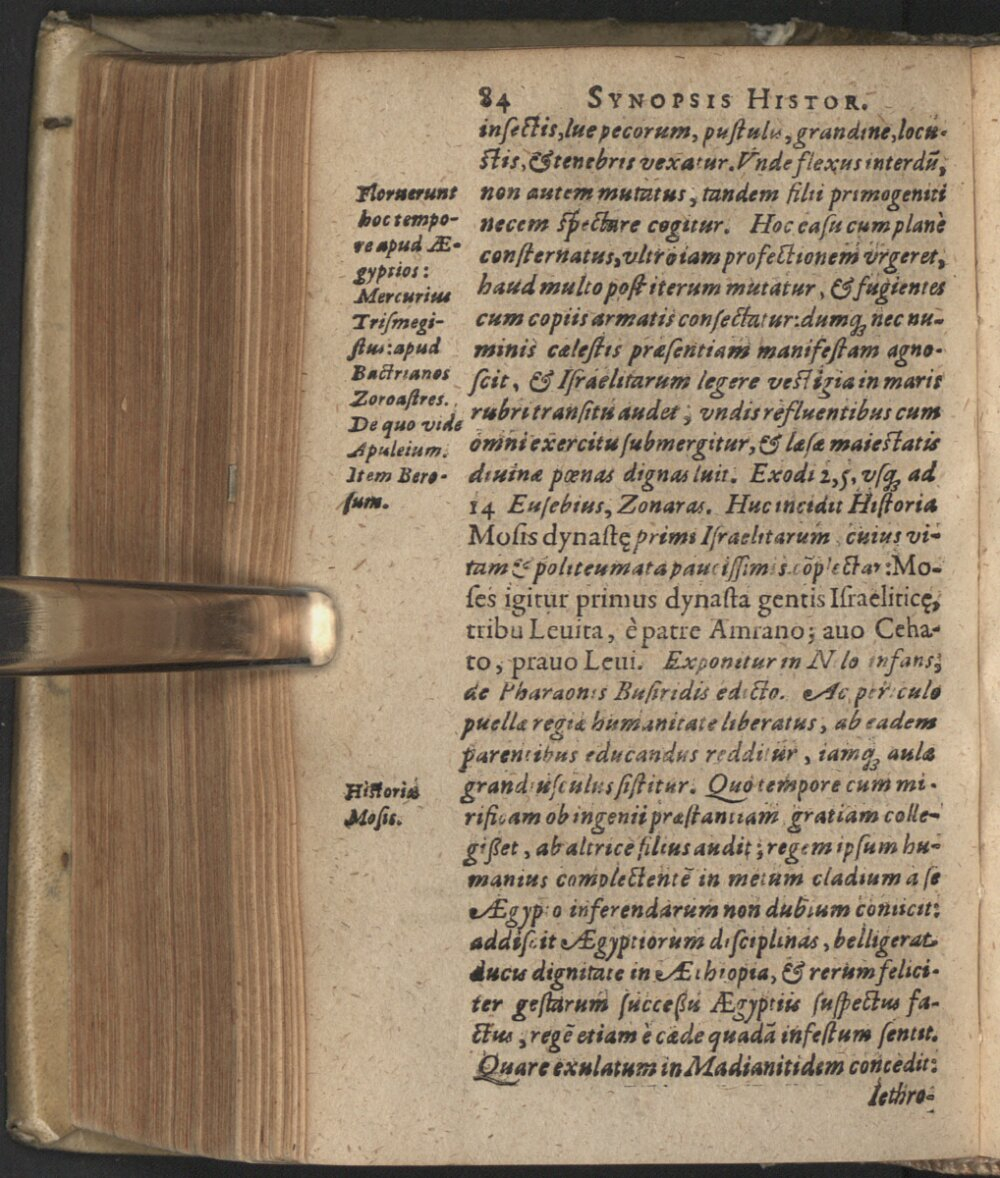 84 SYNOPSIS HISTOR.
insectis, lue pecorum, pustulis, grandine, locu-
stis, & tenebris vexatur. Vnde flexus interdū,
non autem mutatus, tandem filii primogeniti
necem spectare cogitur. Hoc casu cum planè
consternatus, vltro iam profectionem vrgeret,
haud multo post iterum mutatur, & fugientes
cum copiis armatis consectatur: dumq̨ nec nu-
minis cælestis præsentiam manifestam agno-
scit, & Israelitarum legere vestigia in maris
rubri transitu audet, vndis refluentibus cum
omni exercitu submergitur, & læsæ maiestatis
diuinæ pœnas dignas luit. Exodi 2, 5, vsq̨ ad
14 Eusebius, Zonaras. Huc incidit Historia
Mosis dynastę primi Israelitarum cuius vi-
tam & politeumata paucissimis cōplectar: Mo-
ses igitur primus dynasta gentis Israeliticę,
tribu Leuita, è patre Amrano; auo Ceha-
to, prauo Leui. Exponitur in Nilo infans;
de Pharaonis Busiridis edicto. Ac periculo
puellæ regiæ humanitate liberatus, ab eadem
parentibus educandus redditur, iamq̨ aulæ
grandiusculus sistitur. Quo tempore cum mi-
rificam ob ingenii præstantiam gratiam colle-
gisset, ab altrice filius audit; regem ipsum hu-
manius complectentē in metum cladium a se
Ægypto inferendarum non dubium coniicit:
addiscit Ægyptiorum disciplinas, belligerat
ducis dignitate in Æthiopia, & rerum felici-
ter gestarum successu Ægyptiis suspectus fa-
ctus, regē etiam è cæde quadā infestum sentit.
Quare exulatum in Madianitidem concedit:
Iethro-
Floruerunt
hoc tempo-
re apud Æ-
gyptios:
Mercurius
Trismegi-
stus: apud
Bactrianos
Zoroastres.
De quo vide
Apuleium.
Item Bero-
sum.
Historia
Mosis.